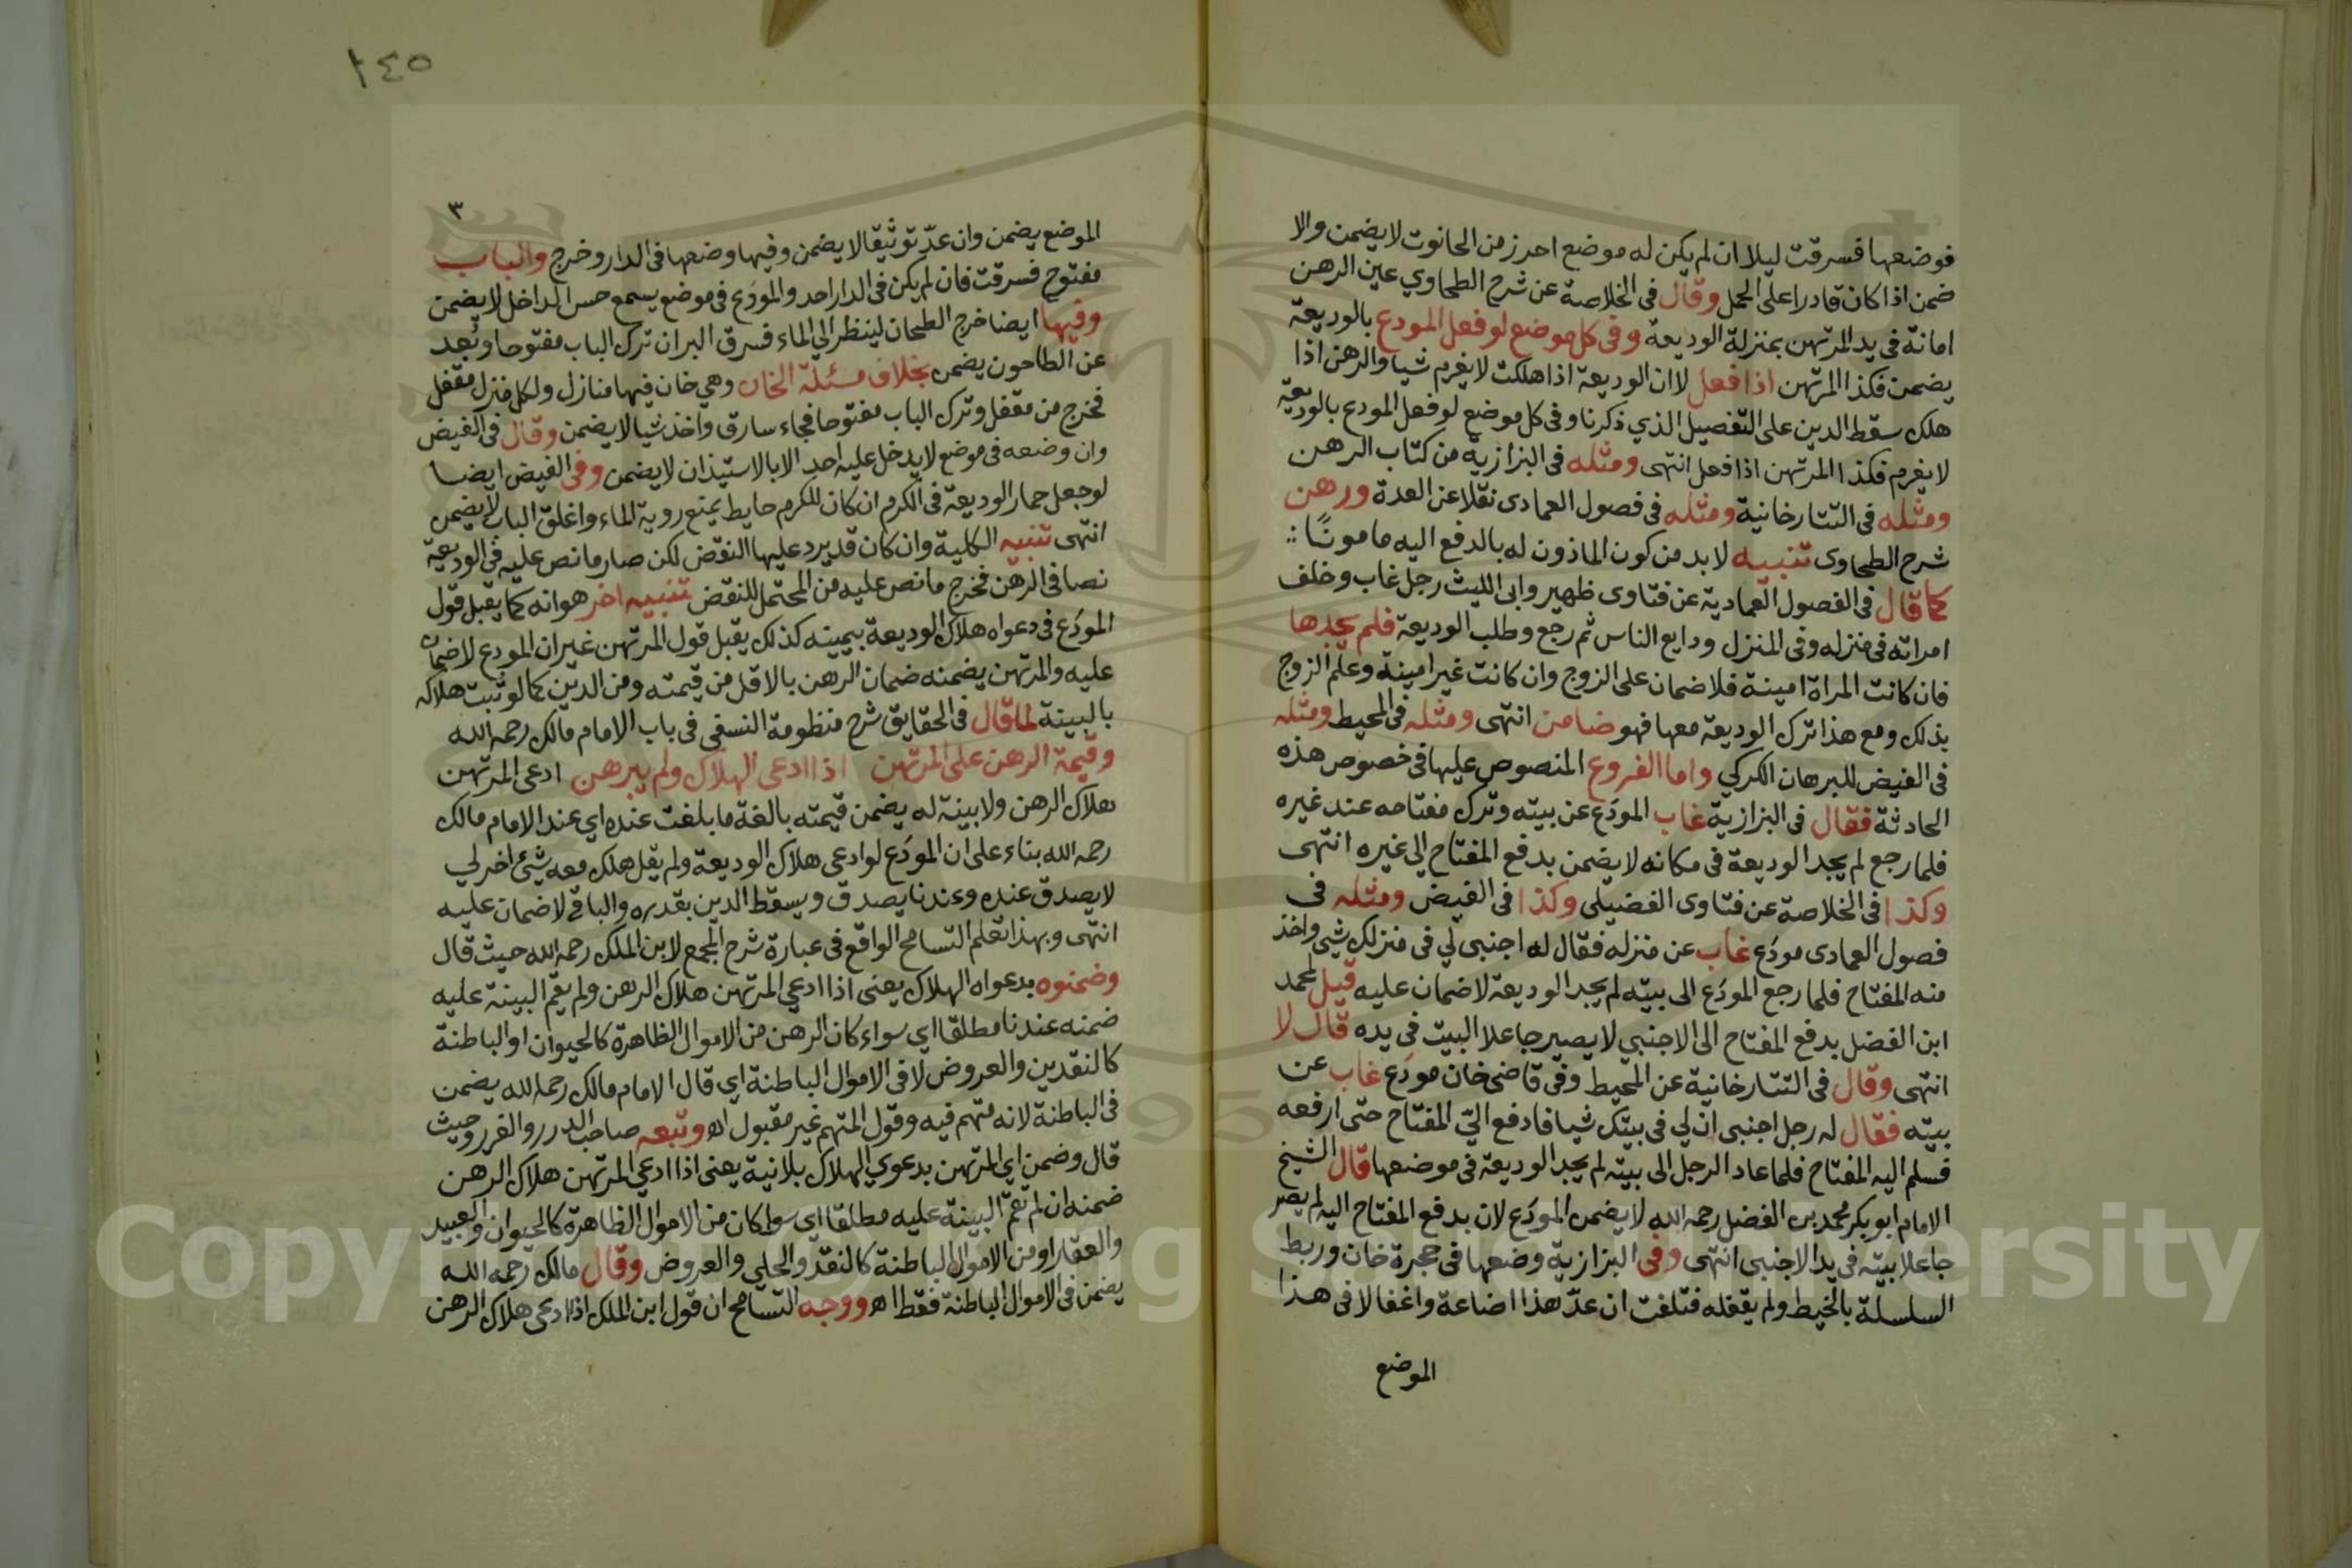 فوضعها فسرقت ليلا ان لم يكن له موضع احرز من الحانوت لا يضمن والا
ضمن اذا كان قادرا على الحمل وقال فى الخلاصة عن شرح الطحاوي عين الرهن
امانة فى يد المرتهن بمنزلة الوديعة وفى كل موضع لو فعل المودع بالوديعة
يضمن فكذا المرتهن اذا فعل لا ان الوديعة اذا هلكت لا يغرم شيا والرهن اذا
هلك سقط الدين على التفصيل الذي ذكرنا وفى كل موضع لو فعل المودع بالوديعة
لا يغرم فكذا المرتهن اذا فعل انتهى ومثله فى البزازية من كتاب الرهن
ومثله فى التتارخانية ومثله فى فصول العمادى نقلا عن العدة ورهن
شرح الطحاوى تنبيه لا بد من كون الماذون له بالدفع اليه مامونًا
كما قال فى الفصول العمادية عن فتاوى ظهير وابى الليث رجل غاب وخلف
امراته فى منزله وفى المنزل ودايع الناس ثم رجع وطلب الوديعة فلم يجدها
فان كانت المراة امينة فلا ضمان على الزوج وان كانت غير امينة وعلم الزوج
بذلك ومع هذا ترك الوديعة معها فهو ضامن انتهى ومثله فى المحيط ومثله
فى الفيض للبرهان الكركي واما الفروع المنصوص عليها فى خصوص هذه
الحادثة فقال فى البزازية غاب المودَع عن بيته وترك مفتاحه عند غيره
فلما رجع لم يجد الوديعة فى مكانه لا يضمن بدفع المفتاح الى غيره انتهى
وكذا فى الخلاصة عن فتاوى الفضيلى وكذا فى الفيض ومثله فى
فصول العمادى مودَع غاب عن منزله فقال له اجنبى لي فى منزلك شئ واخذ
منه المفتاح فلما رجع المودَع الى بيته لم يجد الوديعة لا ضمان عليه قيل لمحمد
ابن الفضل بدفع المفتاح الى الاجنبي لا يصير جاعلا البيت فى يده قال لا
انتهى وقال فى التتارخانية عن المحيط وفى قاضى خان مودَع غاب عن
بيته فقال له رجل اجنبى ان لي فى بيتك شيا فادفع اليّ المفتاح حتى ارفعه
فسلم اليه المفتاح فلما عاد الرجل الى بيته لم يجد الوديعة فى موضعها قال الشيخ
الامام ابو بكر محمد بن الفضل رحمه الله لا يضمن المودَع لان بدفع المفتاح اليه لم يصر
جاعلا بيته فى يد الاجنبى انتهى وفى البزازية وضعها فى حجرة خان وربط
السلسلة بالخيط ولم يقفله فتلفت ان عدّ هذا اضاعة واغفالا فى هذا
الموضع
٢٤٥
٣
الموضع يضمن وان عدّ توثيقا لا يضمن وفيها وضعها فى الدار وخرج والباب
مفتوح فسرقت فان لم يكن فى الدار احد والمودَع فى موضع يسمع حس الداخل لا يضمن
وفيها ايضا خرج الطحان لينظر الى الماء فسرق البر ان ترك الباب مفتوحا وبَعد
عن الطاحون يضمن بخلاف مسئلة الخان وهي خان فيها منازل ولكل منزل مقفل
فخرج من مقفل وترك الباب مفتوحا فجاء سارق واخذ شيا لا يضمن وقال فى الفيض
وان وضعه فى موضع لا يدخل عليه احد الا بالاستيذان لا يضمن وفى الفيض ايضا
لو جعل حمار الوديعة فى الكرم ان كان للكرم حايط يمنع روية الماء واغلق الباب لا يضمن
انتهى تنبيه الكلية وان كان قد يرد عليها النقض لكن صار ما نص عليه فى الوديعة
نصا فى الرهن فخرج ما نص عليه من المحتمل للنقض تنبيه اخر هو انه كما يقبل قول
المودَع فى دعواه هلاك الوديعة بيمينه كذلك يقبل قول المرتهن غير ان المودع لا ضمان
عليه والمرتهن يضمنه ضمان الرهن بالاقل من قيمته ومن الدين كما لو ثبت هلاكه
بالبينة لما قال فى الحقايق شرح منظومة النسفى فى باب الامام مالك رحمه الله
وقيمة الرهن على المرتهن اذا ادعى الهلاك ولم يبرهن ادعى المرتهن
هلاك الرهن ولا بينة له يضمن قيمته بالغة ما بلغت عنده اي عند الامام مالك
رحمه الله بناء على ان المودَع لو ادعى هلاك الوديعة ولم يقل هلك معه شيئ اخر لي
لا يصدق عنده وعندنا يصدق ويسقط الدين بقدره والباقى لا ضمان عليه
انتهى وبهذا تعلم التسامح الواقع فى عبارة شرح المجمع لابن الملك رحمه الله حيث قال
وضمنوه بدعواه الهلاك يعنى اذا ادعى المرتهن هلاك الرهن ولم يقم البينة عليه
ضمنه عندنا مطلقا اي سواء كان الرهن من الاموال الظاهرة كالحيوان او الباطنة
كالنقدين والعروض لا فى الاموال الباطنة اي قال الامام مالك رحمه الله يضمن
فى الباطنة لانه متهم فيه وقول المتهم غير مقبول اه وتبعه صاحب الدرر والغرر وحيث
قال وضمن اي المرتهن بدعوي الهلاك بلا بينة يعنى اذا ادعى المرتهن هلاك الرهن
ضمنه ان لم تقم البينة عليه مطلقا اي سواء كان من الاموال الظاهرة كالحيوان والعبيد
والعقار او من الاموال الباطنة كالنقد والحلي والعروض وقال مالك رحمه الله
يضمن فى الاموال الباطنة فقط اه ووجه التسامح ان قول ابن الملك اذا ادعى هلاك الرهن